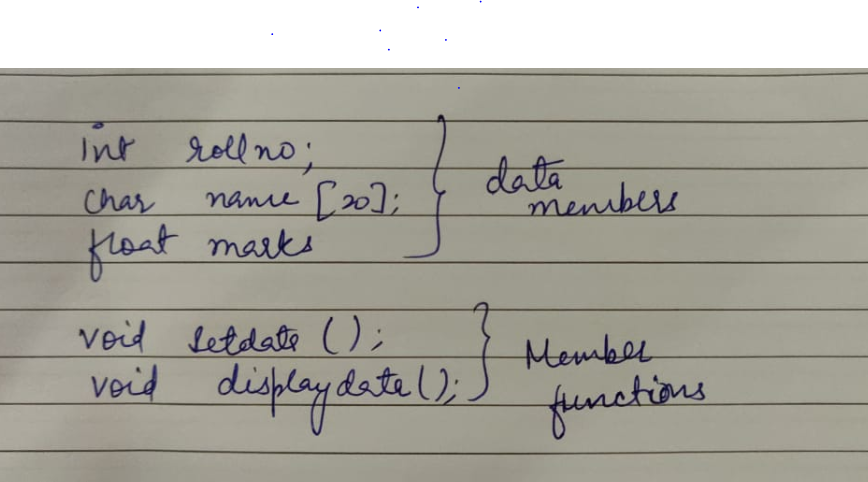 int rollno;
char name [20];
float marks
data
members
void setdate ();
void displaydate();
Member
functions